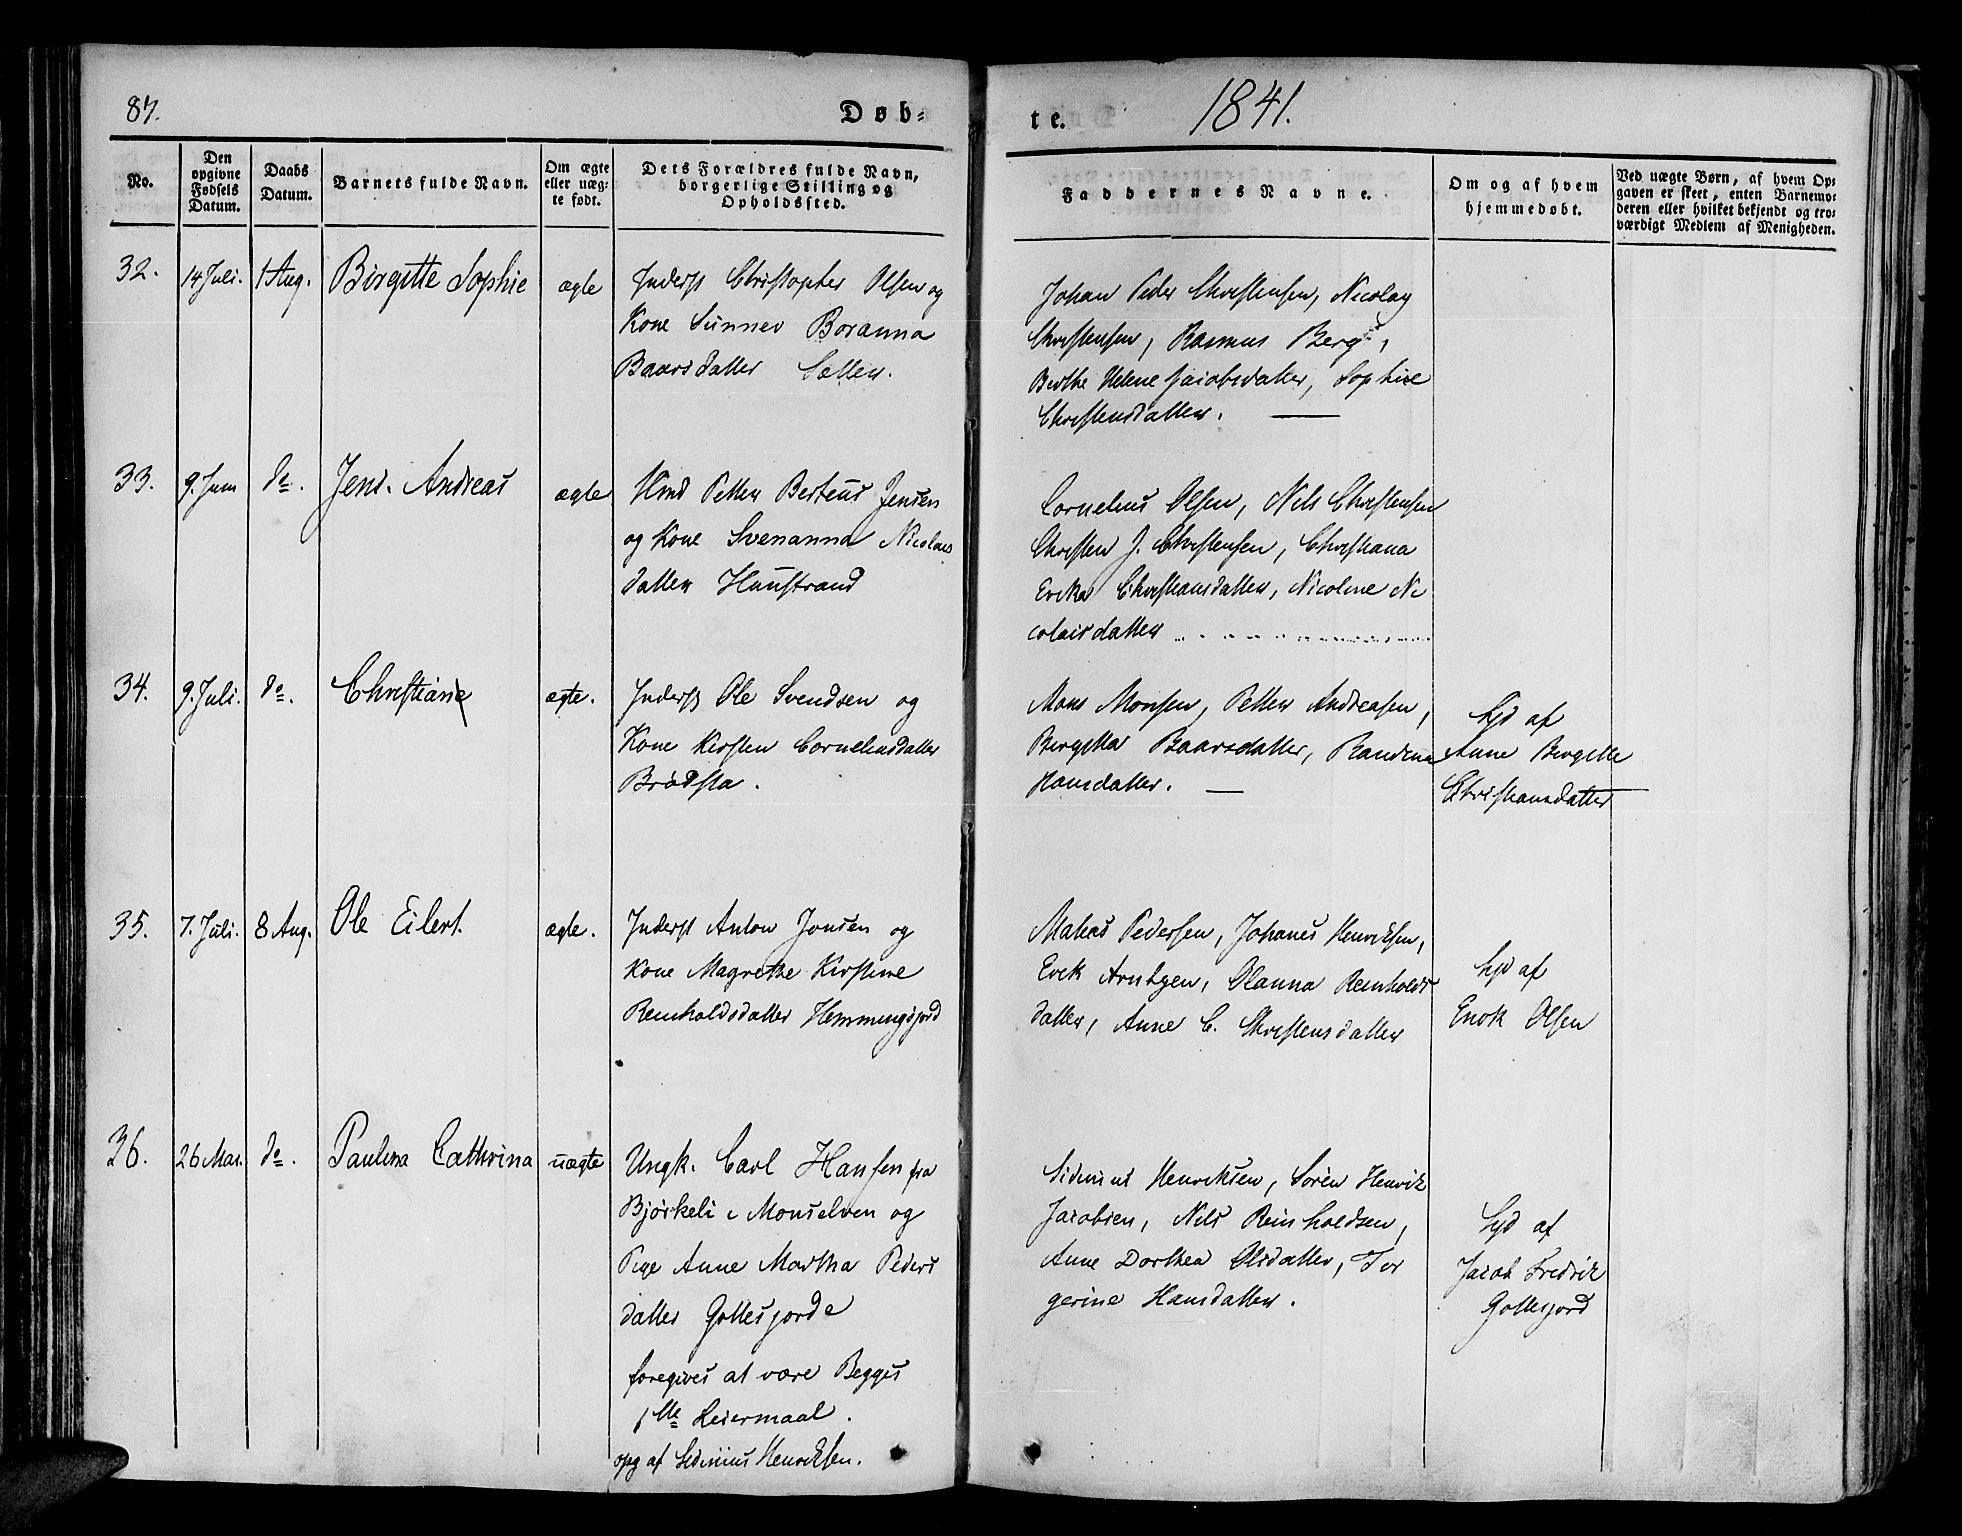 87.
Døb-
te.
1841.
No.
Den
opgivne
Fødsels
Datum.
Daabs
Datum.
Barnets fulde Navn.
Om ægte
eller uæg-
te født.
Dets Forældres fulde Navn,
borgerlige Stilling og
Opholdssted.
Faddernes Navne.
Om og af hvem
hjemmedøbt.
Ved uægte Børn, af hvem Op-
gaven er skeet, enten Barnemo-
deren eller hvilket bekjendt og tro-
værdigt Medlem af Menigheden.
32.
14 Juli.
1 Aug.
Birgitte Sophie
ægte
Inderst Christopher Olsen og
Kone Sünnev Boranna
Baarsdatter
Johan Peder Christensen, Nicolay
Christensen, Rasmus Berg,
Berthe Helene Jacobsdatter, Sophie
Christensdatter.
33.
9. Juni
do.
Jens Andreas
ægte
Petter Berteus Jensen
og Kone Svenanna Nicolais
datter
Cornelius Olsen, Nils Christensen
Christen J. Christensen, Christiana
Erika Christiansdatter, Nicoline Ni
colaisdatter
34.
9. Juli.
do.
Christiane
ægte.
Inderst Ole Svendsen og
Kone Kirsten Corneliusdatter
Brødsta.
Mons Monsen, Petter Andreasen,
Bergitta Baarsdatter, Randina
Hansdatter.
hjd af
Anne Bergitte
Christiansdatter
35.
7. Juli.
8 Aug.
Ole Eilert.
ægte.
Inderst Anton Jonsen og
Kone Magrethe Kirstine
Reinholdsdatter Hemmingsjord
Matias Pedersen, Johanes Henriksen,
Erik Arntzen, Olanna Reinholds
datter, Anne C. Christensdatter
hjd af
Enok Olsen
36.
26 Mai.
do.
Paulina Cathrina
uægte
Ungk. Carl Hansen fra
Bjørkeli i Monselven og
Pige Anne Martha Peders
datter Gottesjorde
foregives at være Begges
1ste Leiermaal.
opg af Sidinius Henriksen.
Sidinius Henriksen, Søren Henrik
Jacobsen, Nils Reinholdsen,
Anne Dorthea Olsdatter, Tor
gerine Hansdatter.
hjd af
Jacob Fredrik
Gottesjord